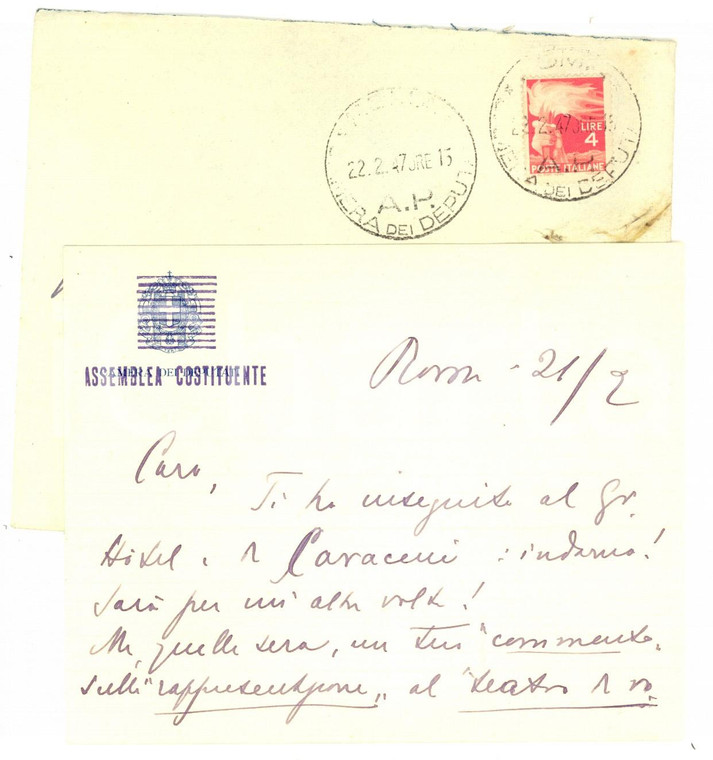 22.2.47 ORE 15
A.P.
MERA DEI DEPUT
22.2.47 15
LIRE
4
POSTE ITALIANE
A.P.
MERA DEI DEPUTA
ASSEMBLEA COSTITUENTE
Roma - 21/2
Caro,
Ti ho inseguito al Gr.
Hôtel e Caraceni : indarno!
Sarà per un'altra volta!
Ma, quella sera, un tuo "commento"
sulla "rappresentazione" al "teatro